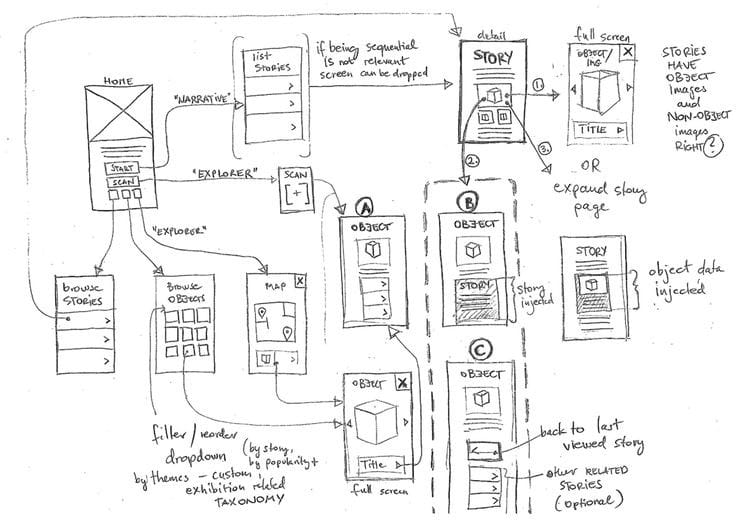 HOME
START
SCAN
"NARRATIVE"
"EXPLORER"
"EXPLORER"
list
STORIES
if being sequential
IS not relevant
screen can be dropped
detail
STORY
1.
2.
3.
full screen
OBJECT/
IMG
X
TITLE
STORIES
HAVE
OBJECT
Images
and
NON-OBJECT
images
RIGHT?
OR
expand story
page
SCAN
[+]
A
OBJECT
B
OBJECT
STORY
story
injected
STORY
object data
injected
browse
STORIES
BROWSE
OBJECTS
MAP
X
filter/reorder
dropdown (by story,
by popularity +
by themes – custom,
exhibition related
TAXONOMY
OBJECT
X
Title
full screen
C
OBJECT
back to last
viewed story
other RELATED
STORIES
(optional)